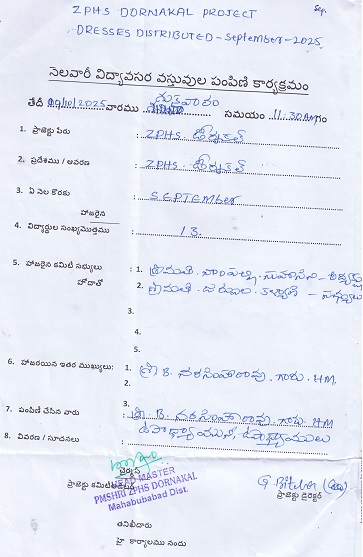 Sep.
ZPHS DORNAKAL PROJECT
DRESSES DISTRIBUTED - September - 2025
నెలవారీ విద్యావసర వస్తువుల పంపిణి కార్యక్రమం
శుక్రవారం
తేదీ 09/10/2025 వారము సమయం 11.30AM గం
1. ప్రాజెక్టు పేరు : ZPHS. డోర్నకల్
2. ప్రదేశము / ఆవరణ : ZPHS. డోర్నకల్
3. ఏ నెల కొరకు : SEPTEMBER
హాజరైన
4. విద్యార్థుల సంఖ్యమొత్తము : 13.
5. హాజరైన కమిటి సభ్యులు : 1. శ్రీమతి. సుహాసిని -
హోదాతో 2. శ్రీమతి. కళ్యాణి - సభ్యులు
3.
4.
5.
6. హాజరయిన ఇతర ముఖ్యులు: 1. శ్రీ B. నరసింహారావు. గారు. HM.
2.
3.
7. పంపిణి చేసిన వారు : శ్రీ. B. నరసింహారావు. గారు. HM
8. వివరణ / సూచనలు : ఉపాధ్యాయులు
చైర్మన్
ప్రాజెక్టు కమిటి
HEAD MASTER
PMSHRI ZPHS DORNAKAL
Mahabubabad Dist.
ప్రాజెక్టు డైరెక్టర్
తనిఖీదారు
హై కార్యాలము నందు